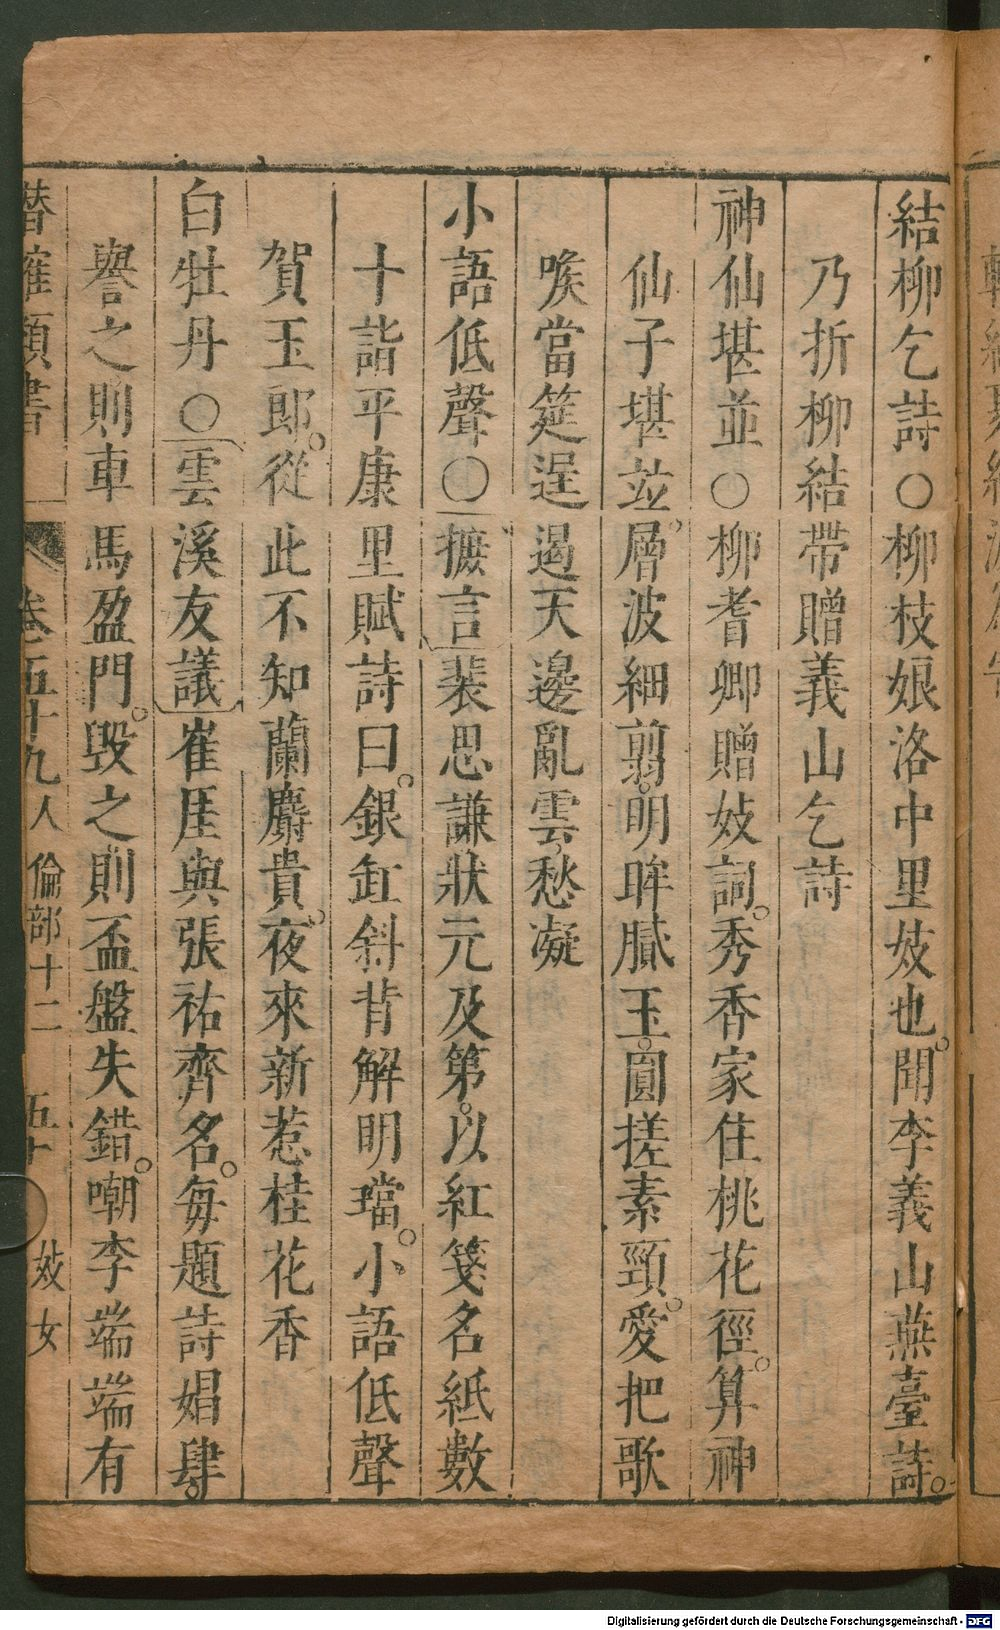 結柳乞詩○柳枝娘洛中里妓也聞李義山燕臺詩
乃折柳結帶贈義山乞詩
神仙堪並○柳耆卿贈妓詞秀香家住桃花徑算神
仙子堪並層波細翦明眸膩玉圓搓素頸愛把歌
喉當筵逞遏天邊亂雲愁凝
小語低聲○摭言裴思謙狀元及第以紅箋名紙數
十詣平康里賦詩曰銀缸斜背解明璫小語低聲
賀玉郎從此不知蘭麝貴夜來新惹桂花香
白牡丹○雲溪友議崔厓與張祐齊名每題詩娼肆
譽之則車馬盈門毀之則盃盤失錯嘲李端端有
潛確類書 卷五十九 人倫部十二 五十 妓女
Digitalisierung gefördert durch die Deutsche Forschungsgemeinschaft - DFG